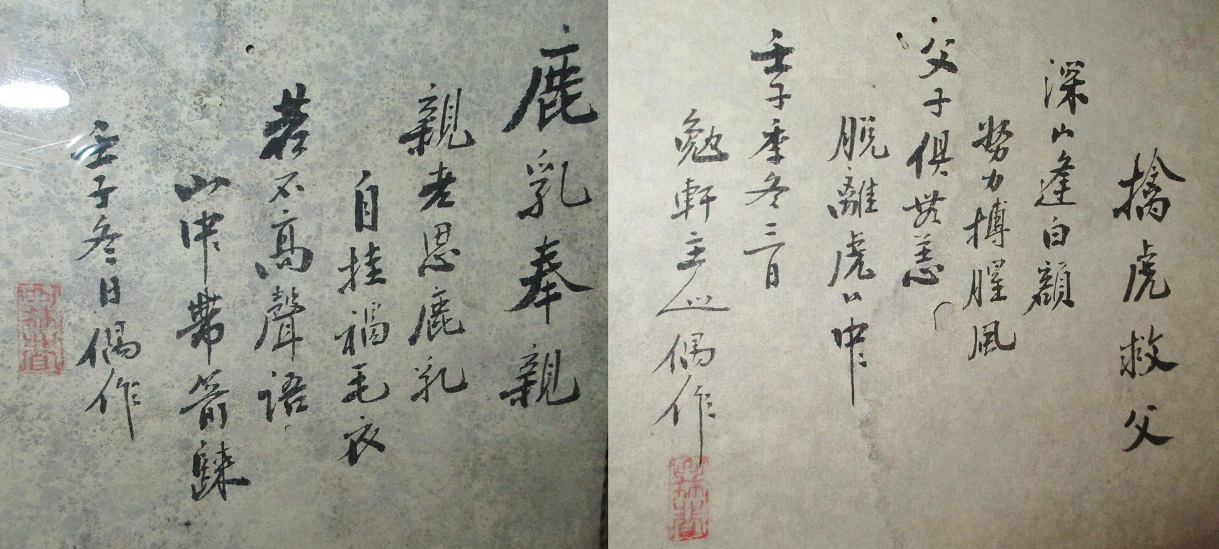 擒虎救父
深山逢白額
努力搏腥風
父子俱無恙
脫離虎口中
壬子季冬三日
勉軒主人偶作
鹿乳奉親
親老思鹿乳
自挂褐毛衣
若不高聲語
山中帶箭歸
壬子冬日偶作